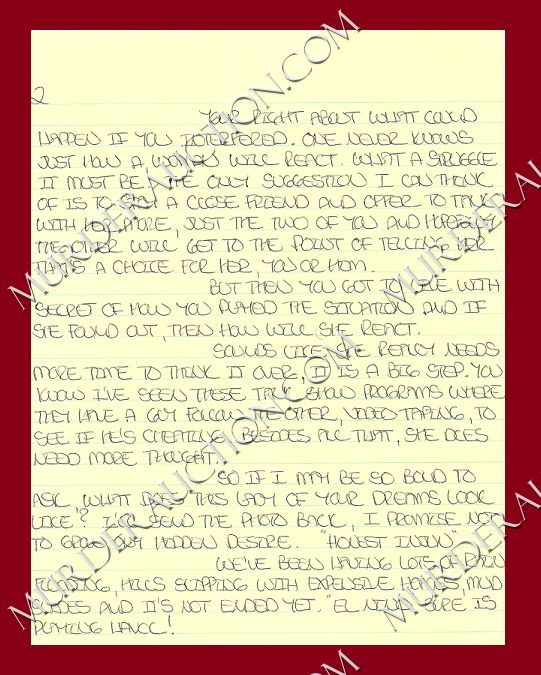 2
YOUR RIGHT ABOUT WHAT COULD
HAPPEN IF YOU INTERFERED. ONE NEVER KNOWS
JUST HOW A WOMAN WILL REACT. WHAT A STRUGGLE
IT MUST BE. THE ONLY SUGGESTION I CAN THINK
OF IS TO STAY A CLOSE FRIEND AND OFFER TO TALK
WITH HER MORE, JUST THE TWO OF YOU AND HOPEFULLY
THE OTHER WILL GET TO THE POINT OF TELLING HER
THAT'S A CHOICE FOR HER, YOU OR HIM.
BUT THEN YOU GOT TO LIVE WITH
SECRET OF HOW YOU PLAYED THE SITUATION AND IF
SHE FOUND OUT, THEN HOW WILL SHE REACT.
SOUNDS LIKE SHE REALLY NEEDS
MORE TIME TO THINK IT OVER, IT IS A BIG STEP. YOU
KNOW I'VE SEEN THESE TALK SHOW PROGRAMS WHERE
THEY HAVE A GUY FOLLOW THE OTHER, VIDEO TAPING, TO
SEE IF HE'S CHEATING. BESIDES ALL THAT, SHE DOES
NEED MORE THOUGHT.
SO IF I MAY BE SO BOLD TO
ASK, WHAT DOES THIS LADY OF YOUR DREAMS LOOK
LIKE? I'LL SEND THE PHOTO BACK, I PROMISE NOT
TO GROW ANY HIDDEN DESIRE. "HONEST INJUN"
WE'VE BEEN HAVING LOTS OF RAIN
FLOODING, HILLS SLIPPING WITH EXPENSIVE HOMES, MUD
SLIDES AND IT'S NOT ENDED YET. "EL NINO" SURE IS
PLAYING HAVOC!
MURDERAUCTION.COM
MURDERAUCTION.COM